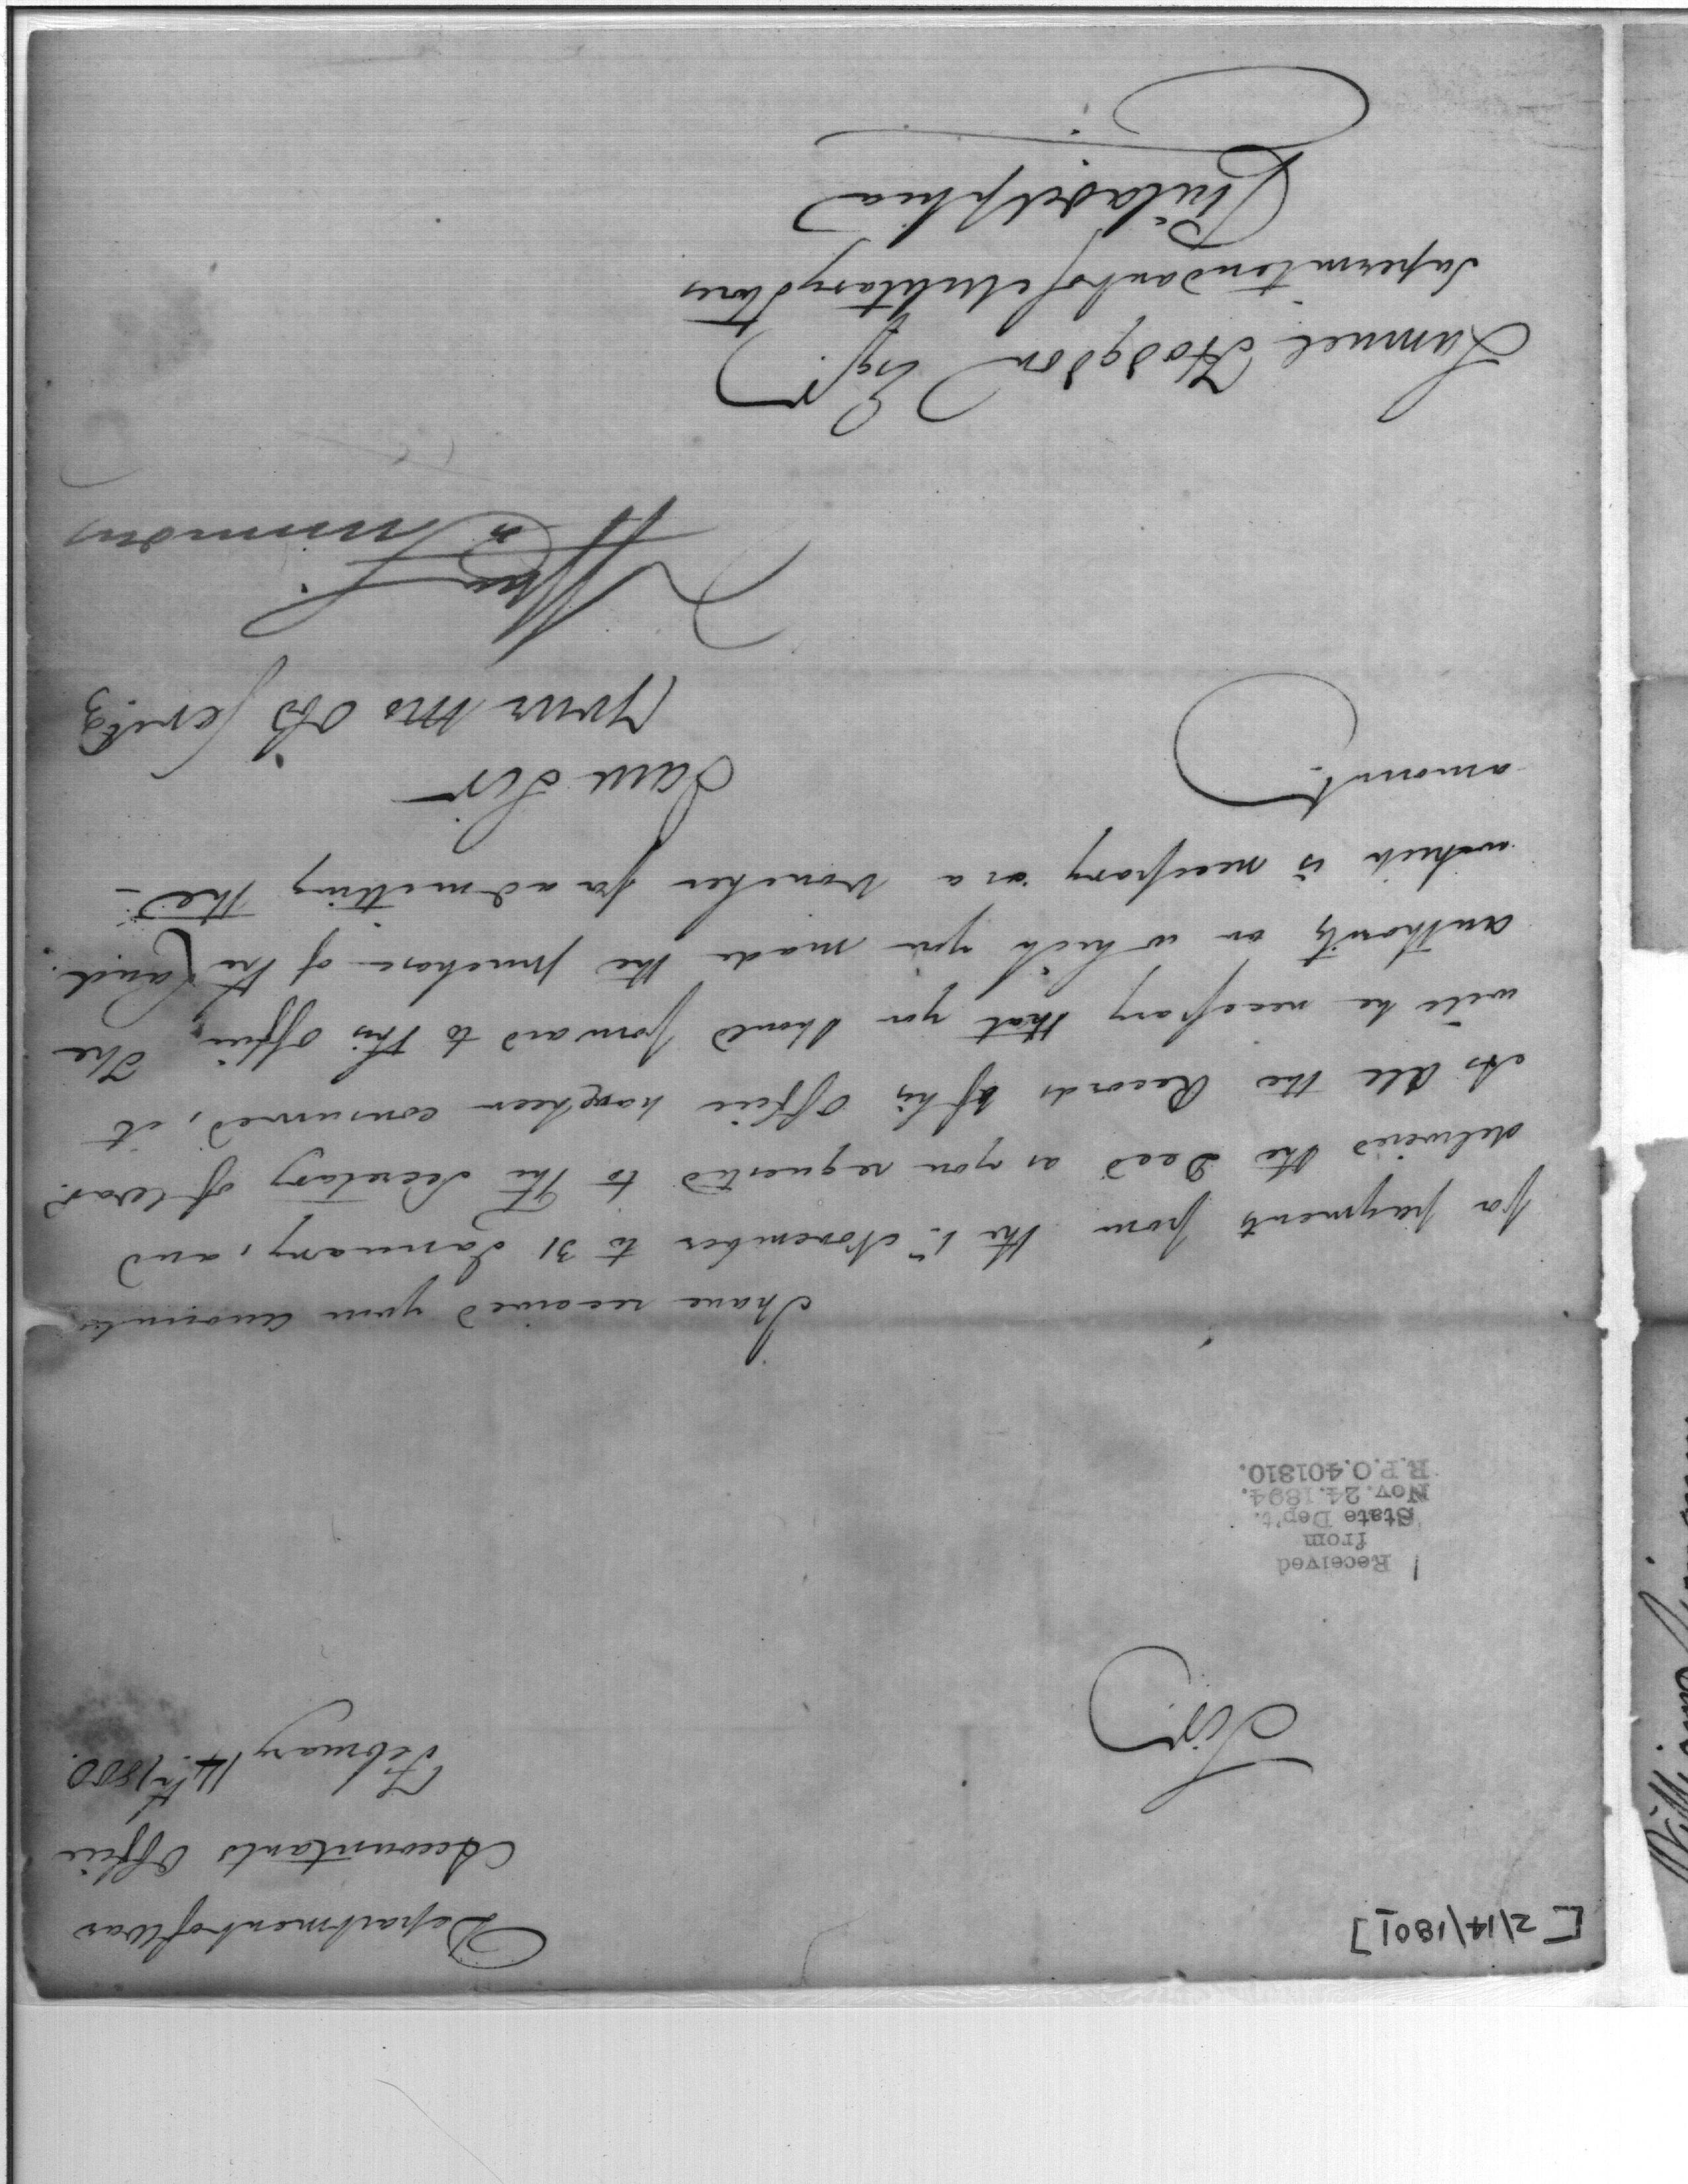 [2/14/1801]
Department of War
Accountants Office
February 14th. 1800.
Sir
Received
from
State Dep't.
Nov. 24. 1894.
R.P.O. 401810.
I have received your accounts
for payments from the 1st November to 31 January, and
delivered the Deed as you requested to the Secretary of War.
As all the Records of his Office have been consumed, it
will be necessary that you should forward to this Office, the
authority on which you made the purchase of the Land.
which is necessary as a voucher for admitting the
amount.
I am Sir
your mo ob servt
Wm Simmons
Samuel Hodgdon Esqr.
Superintendant of Military Stores
Philadelphia
William Simmons